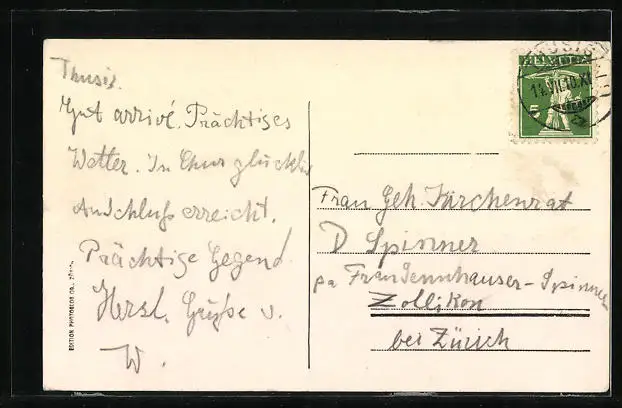 Thusis.
Gut arrivé. Prächtiges
Wetter. In Chur glücklich
Anschluß erreicht.
Prächtige Gegend.
Herzl. Grüße v.
W.
EDITION PHOTOGLOB CO., ZÜRICH
HELVETIA
5
THUSIS
14.VII.10.XI
Frau Geh. Kirchenrat
D Spinner
pa Frau Dennhauser-Spinner
Zollikon
bei Zürich